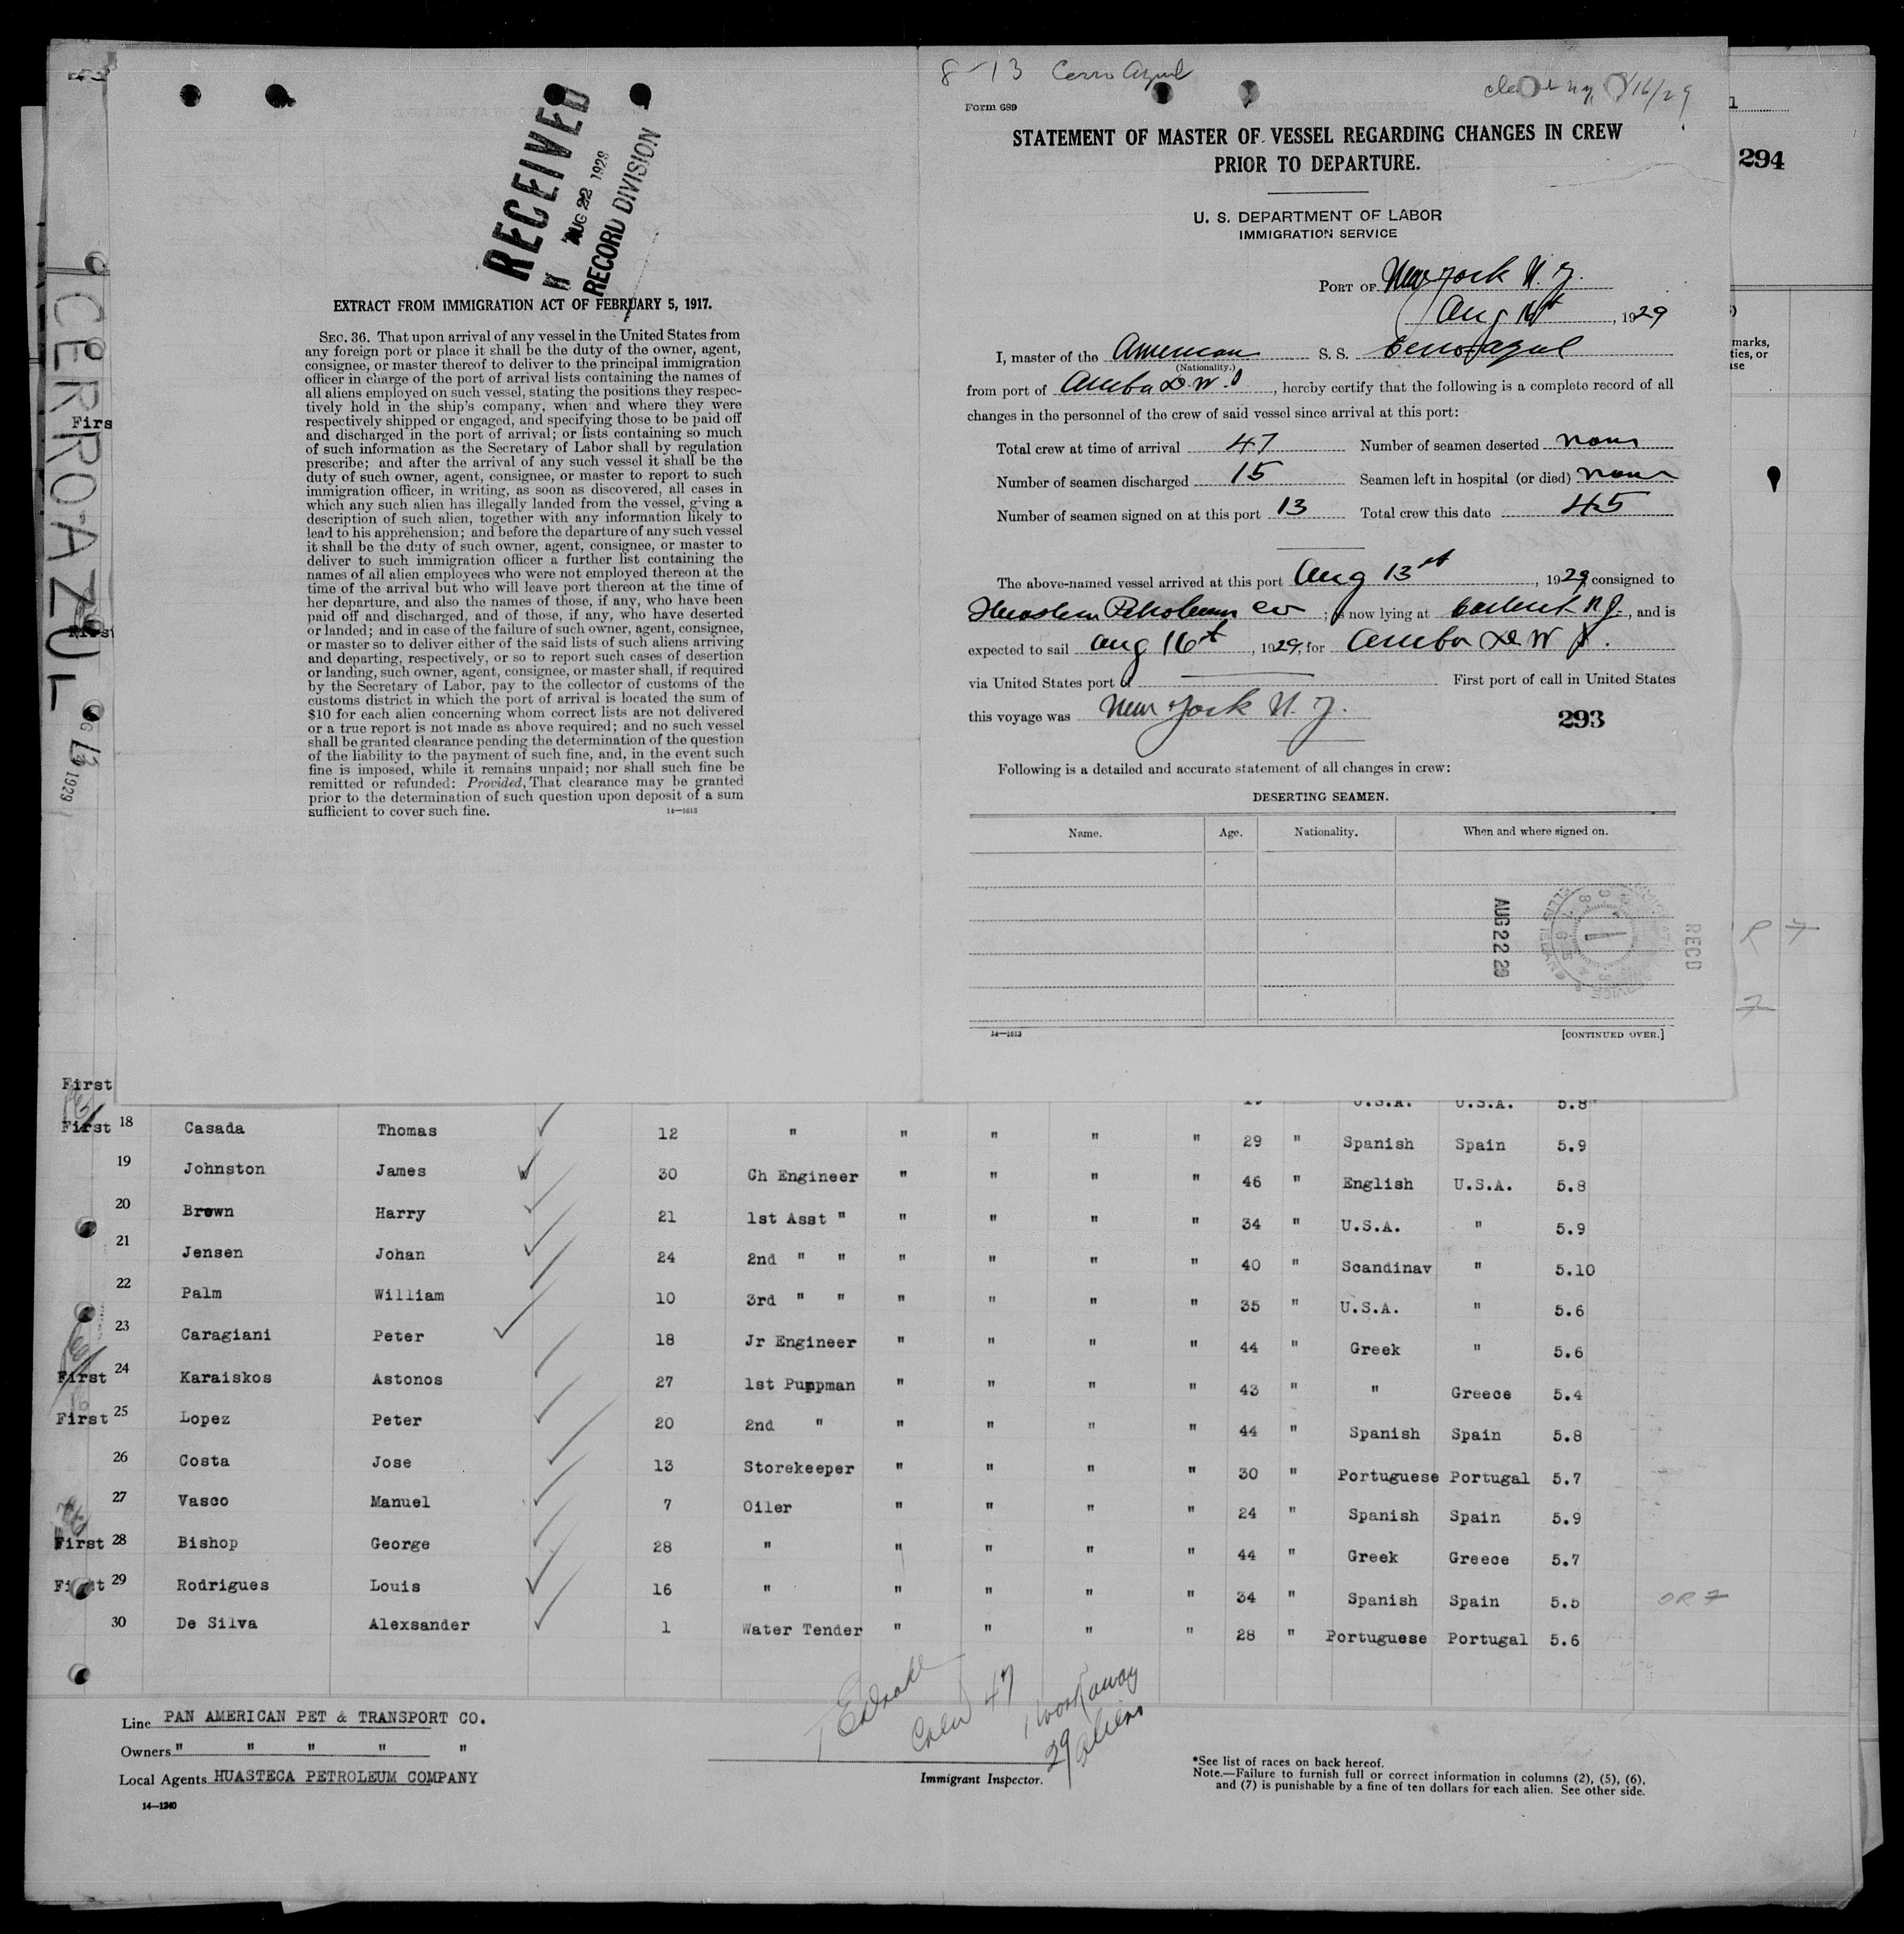 8-13 Cerro Azul
8/16/29
Form 689
STATEMENT OF MASTER OF VESSEL REGARDING CHANGES IN CREW
PRIOR TO DEPARTURE.
U. S. DEPARTMENT OF LABOR
IMMIGRATION SERVICE
PORT OF New York N. Y.
Aug , 1929
I, master of the American S. S. Cerro Azul
(Nationality.)
from port of Aruba D. W. I , hereby certify that the following is a complete record of all
changes in the personnel of the crew of said vessel since arrival at this port:
Total crew at time of arrival 47 Number of seamen deserted none
Number of seamen discharged 15 Seamen left in hospital (or died) none
Number of seamen signed on at this port 13 Total crew this date 45
The above-named vessel arrived at this port Aug 13 , 1929, consigned to
Huasteca Petroleum Co ; is now lying at Carteret N. J. , and is
expected to sail Aug 16th , 1929, for Aruba D W I .
via United States port First port of call in United States
this voyage was New York N. Y.
293
Following is a detailed and accurate statement of all changes in crew:
DESERTING SEAMEN.
Name. Age. Nationality. When and where signed on.
AUG 22 29
RECD
14—1613 [CONTINUED OVER.]
RECEIVED
AUG 22 1929
RECORD DIVISION
EXTRACT FROM IMMIGRATION ACT OF FEBRUARY 5, 1917.
SEC. 36. That upon arrival of any vessel in the United States from
any foreign port or place it shall be the duty of the owner, agent,
consignee, or master thereof to deliver to the principal immigration
officer in charge of the port of arrival lists containing the names of
all aliens employed on such vessel, stating the positions they respec-
tively hold in the ship's company, when and where they were
respectively shipped or engaged, and specifying those to be paid off
and discharged in the port of arrival; or lists containing so much
of such information as the Secretary of Labor shall by regulation
prescribe; and after the arrival of any such vessel it shall be the
duty of such owner, agent, consignee, or master to report to such
immigration officer, in writing, as soon as discovered, all cases in
which any such alien has illegally landed from the vessel, giving a
description of such alien, together with any information likely to
lead to his apprehension; and before the departure of any such vessel
it shall be the duty of such owner, agent, consignee, or master to
deliver to such immigration officer a further list containing the
names of all alien employees who were not employed thereon at the
time of the arrival but who will leave port thereon at the time of
her departure, and also the names of those, if any, who have been
paid off and discharged, and of those, if any, who have deserted
or landed; and in case of the failure of such owner, agent, consignee,
or master so to deliver either of the said lists of such aliens arriving
and departing, respectively, or so to report such cases of desertion
or landing, such owner, agent, consignee, or master shall, if required
by the Secretary of Labor, pay to the collector of customs of the
customs district in which the port of arrival is located the sum of
$10 for each alien concerning whom correct lists are not delivered
or a true report is not made as above required; and no such vessel
shall be granted clearance pending the determination of the question
of the liability to the payment of such fine, and, in the event such
fine is imposed, while it remains unpaid; nor shall such fine be
remitted or refunded: Provided, That clearance may be granted
prior to the determination of such question upon deposit of a sum
sufficient to cover such fine.
14—1613
CERRO AZUL
13 1929
294
marks,
ties, or
R 7
7
First
U.S.A. U.S.A. 5.8
First 18 Casada Thomas 12 " " " " " 29 " Spanish Spain 5.9
19 Johnston James 30 Ch Engineer " " " " 46 " English U.S.A. 5.8
20 Brown Harry 21 1st Asst " " " " " 34 " U.S.A. " 5.9
21 Jensen Johan 24 2nd " " " " " " 40 " Scandinav " 5.10
22 Palm William 10 3rd " " " " " " 35 " U.S.A. " 5.6
23 Caragiani Peter 18 Jr Engineer " " " " 44 " Greek " 5.6
First 24 Karaiskos Astonos 27 1st Pumpman " " " " 43 " " Greece 5.4
First 25 Lopez Peter 20 2nd " " " " " 44 " Spanish Spain 5.8
26 Costa Jose 13 Storekeeper " " " " 30 " Portuguese Portugal 5.7
27 Vasco Manuel 7 Oiler " " " " 24 " Spanish Spain 5.9
First 28 Bishop George 28 " " " " " 44 " Greek Greece 5.7
First 29 Rodrigues Louis 16 " " " " " 34 " Spanish Spain 5.5 OR 7
30 De Silva Alexsander 1 Water Tender " " " " 28 " Portuguese Portugal 5.6
Crew 47
1 workaway
29 aliens
Line PAN AMERICAN PET & TRANSPORT CO.
Owners " " " " "
Local Agents HUASTECA PETROLEUM COMPANY
14—1240
Immigrant Inspector.
*See list of races on back hereof.
Note.—Failure to furnish full or correct information in columns (2), (5), (6),
and (7) is punishable by a fine of ten dollars for each alien. See other side.